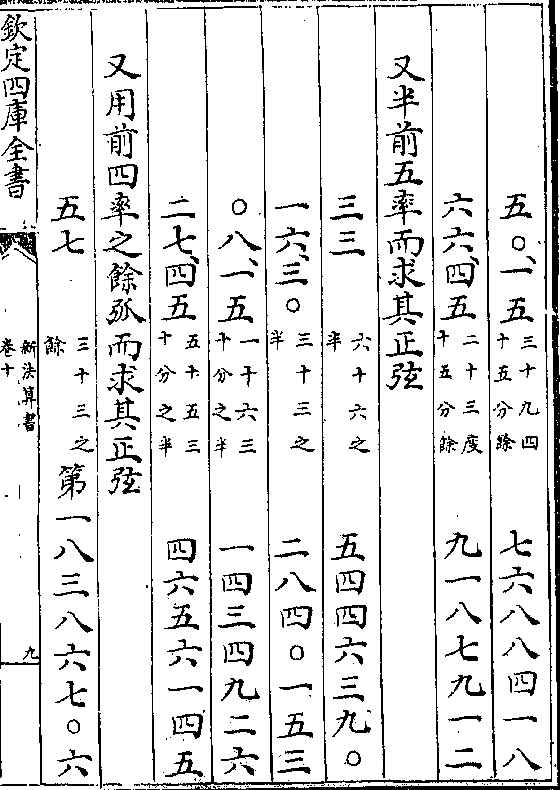 五〇、一五 三十九四十五分餘 七六八八四一八
六六、四五 二十三度十五分餘 九一八七九一二
又半前五率而求其正弦
三三 六十六之半 五四四六三九〇
一六、三〇 三十三之半 二八四〇一五三
〇八、一五 一十六三十分之半 一四三四九二六
二七、四五 五十五三十分之半 四六五六一四五
又用前四率之餘弧而求其正弦
五七 三十三之餘 第一八三八六七〇六
欽定四庫全書 新法算書 卷十 九